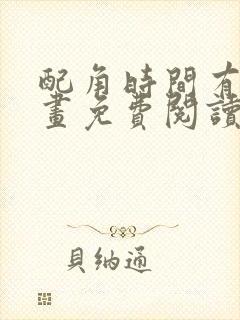 配角時間有
畫免費閱讀
貝納通